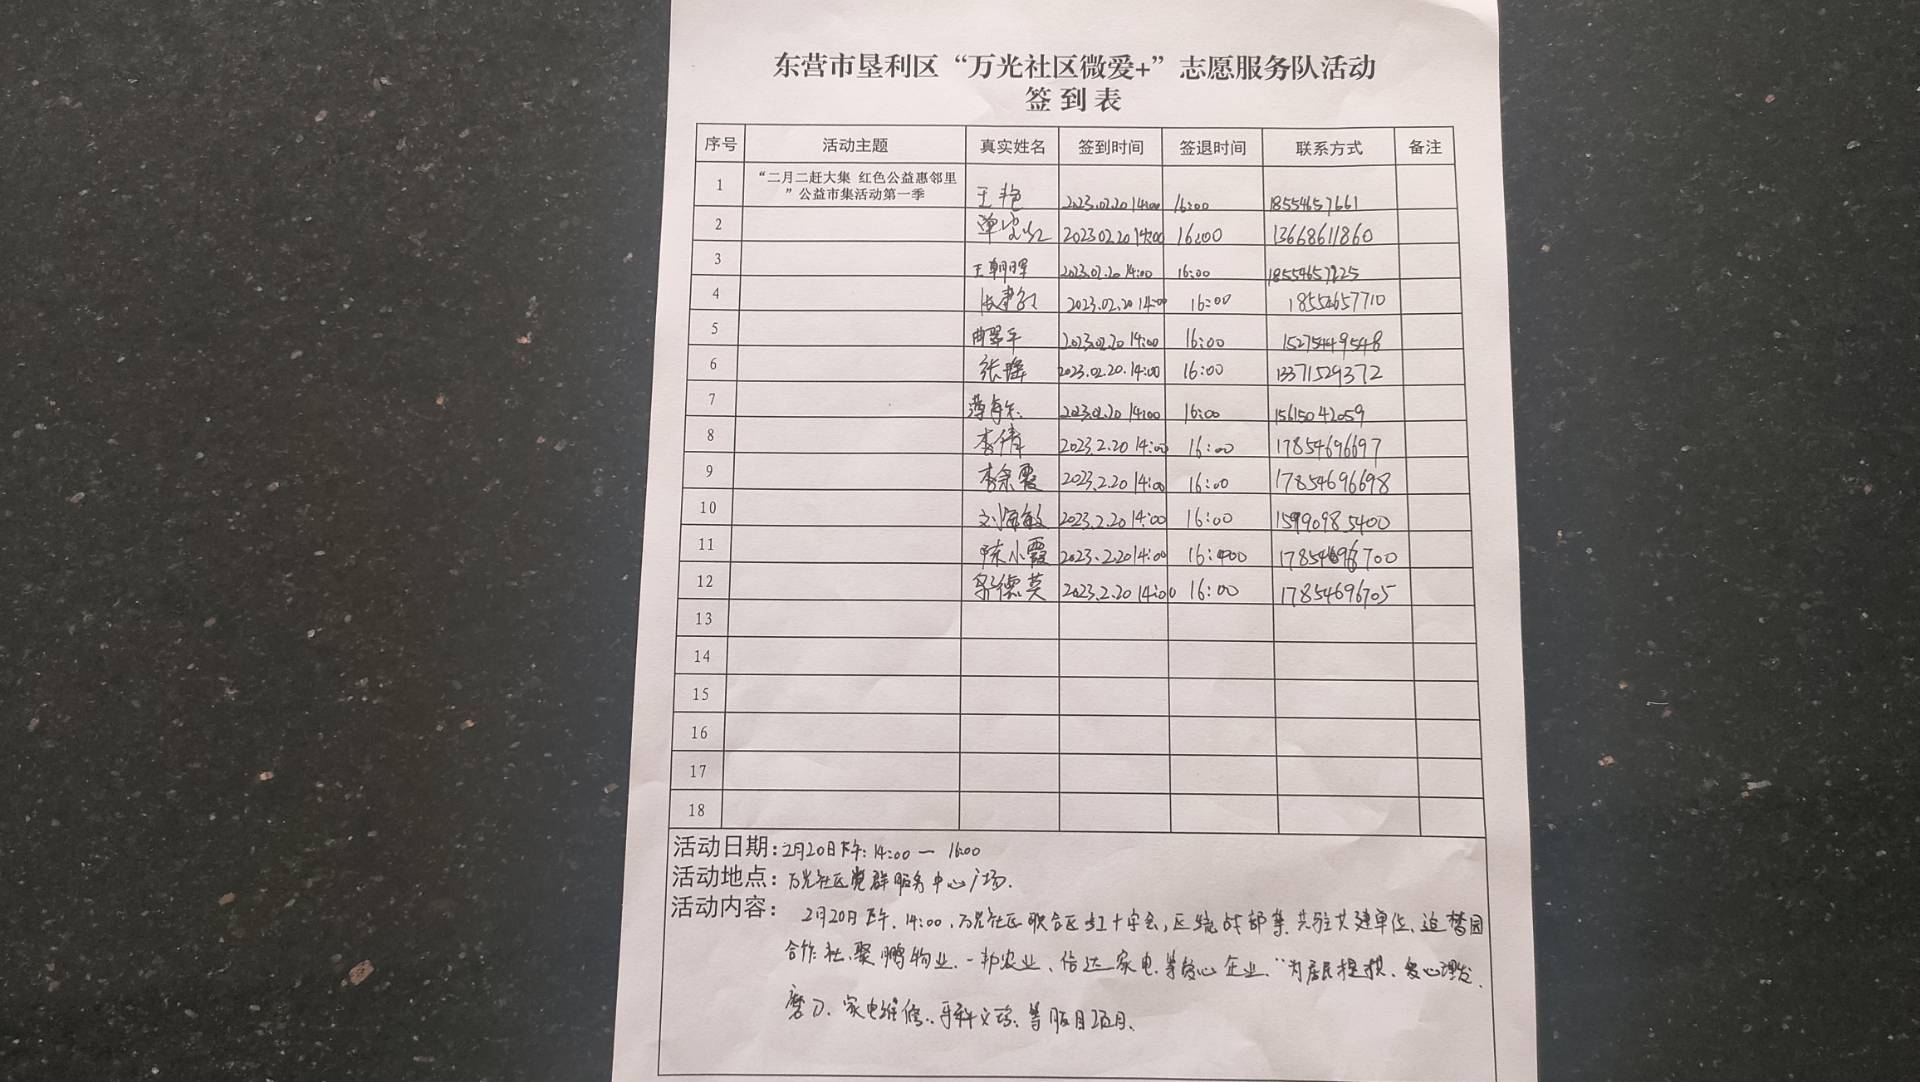 东营市垦利区“万光社区微爱+”志愿服务队活动
签到表
序号 活动主题 真实姓名 签到时间 签退时间 联系方式 备注
1 “二月二赶大集 红色公益惠邻里
”公益市集活动第一季 王艳 2023.02.20 14:00 16:00 18554657661
2 2023.02.20 14:00 16:00 13668611860
3 王朝晖 2023.02.20 14:00 16:00
4 2023.02.20 14:00 16:00 18554657710
5 曲翠平 2023.02.20 14:00 16:00 15275449548
6 张瑶 2023.02.20.14:00 16:00 13371529372
7 2023.02.20 14:00 16:00 15615042059
8 李倩 2023.2.20 14:00 16:00 17854696697
9 李余霞 2023.2.20 14:00 16:00 17854696698
10 刘海敏 2023.2.20 14:00 16:00
11 陈小霞 2023.2.20 14:00
12 2023.2.20 14:00 16:00 17854696705
13
14
15
16
17
18
活动日期:2月20日下午:14:00一 16:00
活动地点:万光社区党群服务中心广场.
活动内容: 2月20日下午.14:00.万光社区联合区红十字会,区统战部等.共驻共建单位、追梦园
合作社、聚鹏物业、一邦农业、信达家电、等爱心企业.“为居民提供、爱心理发、
磨刀、家电维修、牙科义诊、等服务项目、